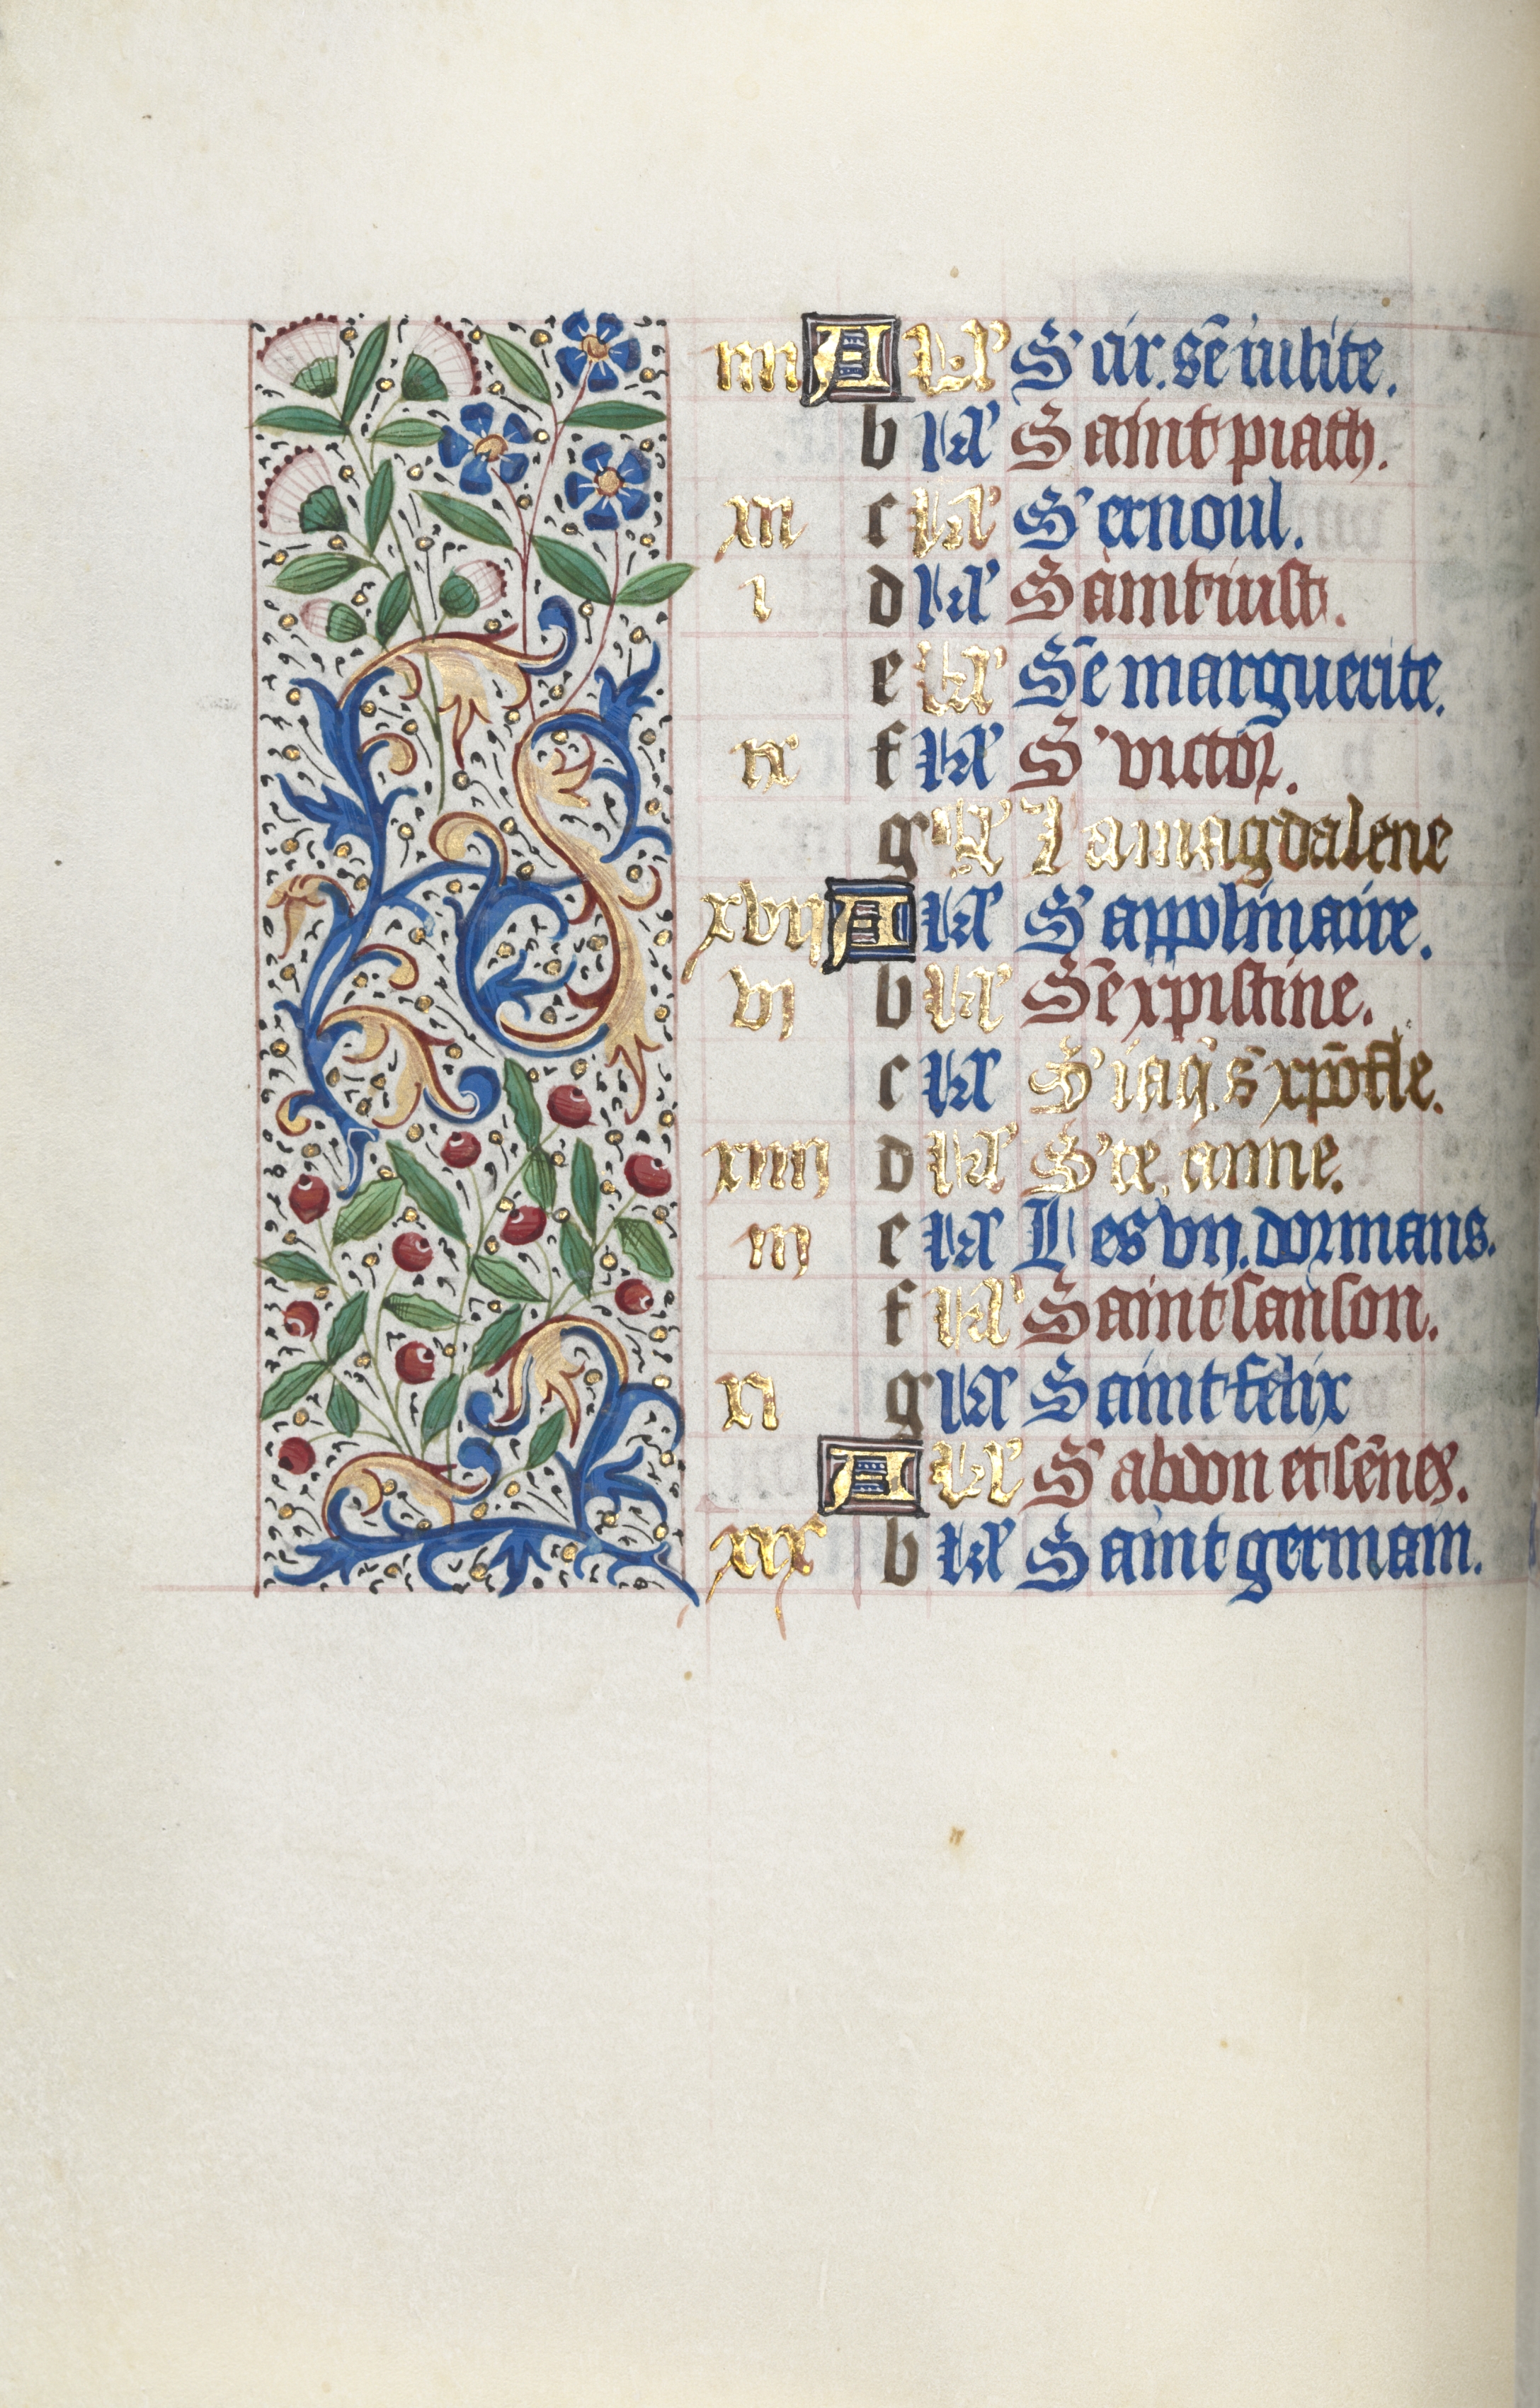 iiii A kl' S' cir. sē iulite.
b kl' Saint piath.
xii c kl' S' ernoul.
i d kl' Saint iust.
e kl' Sē marguerite.
ix f kl' S' victor.
g kl' La magdalene
xvii A kl' S' appolinaire.
vi b kl' Sē xpistine.
c kl' S' iaq̄. s' xpōfle.
xiiii d kl' S'te anne.
iii e kl' Les vii. dormans.
f kl' Saint sanson.
xi g kl' Saint felix
A kl' S' abdon et sēnes.
xix b kl' Saint germain.